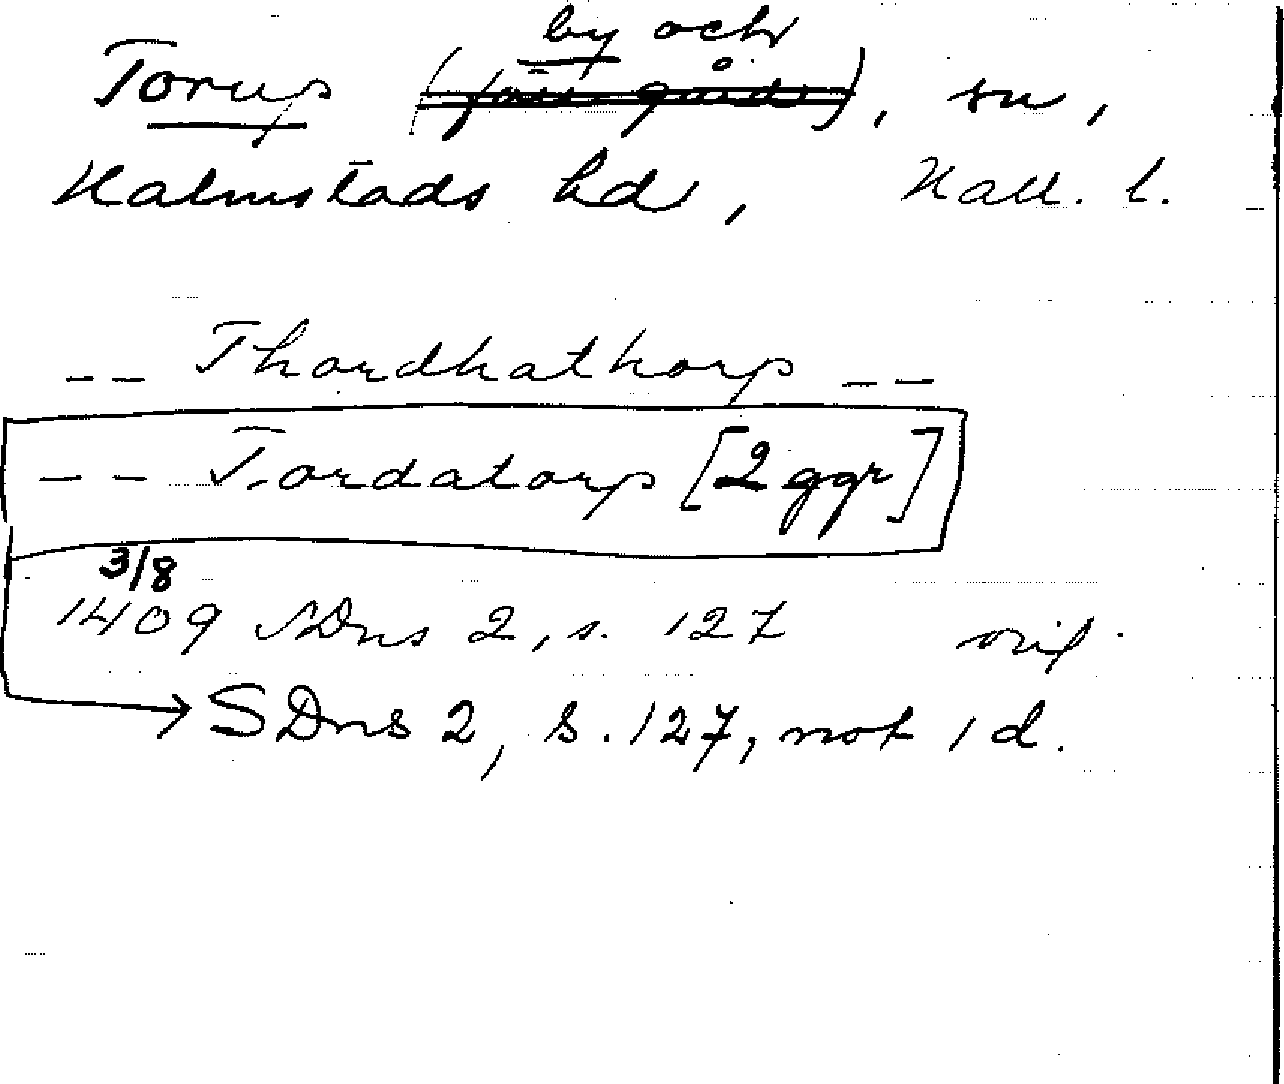 by och
Torup (för gård), sn,
Halmstads hd, Hall. l.
-- Thordhathorp --
-- Tordatorp [2 ggr]
3/8
1409 SDns 2, s. 127 orig.
→ SDns 2, s. 127, not 1 d.